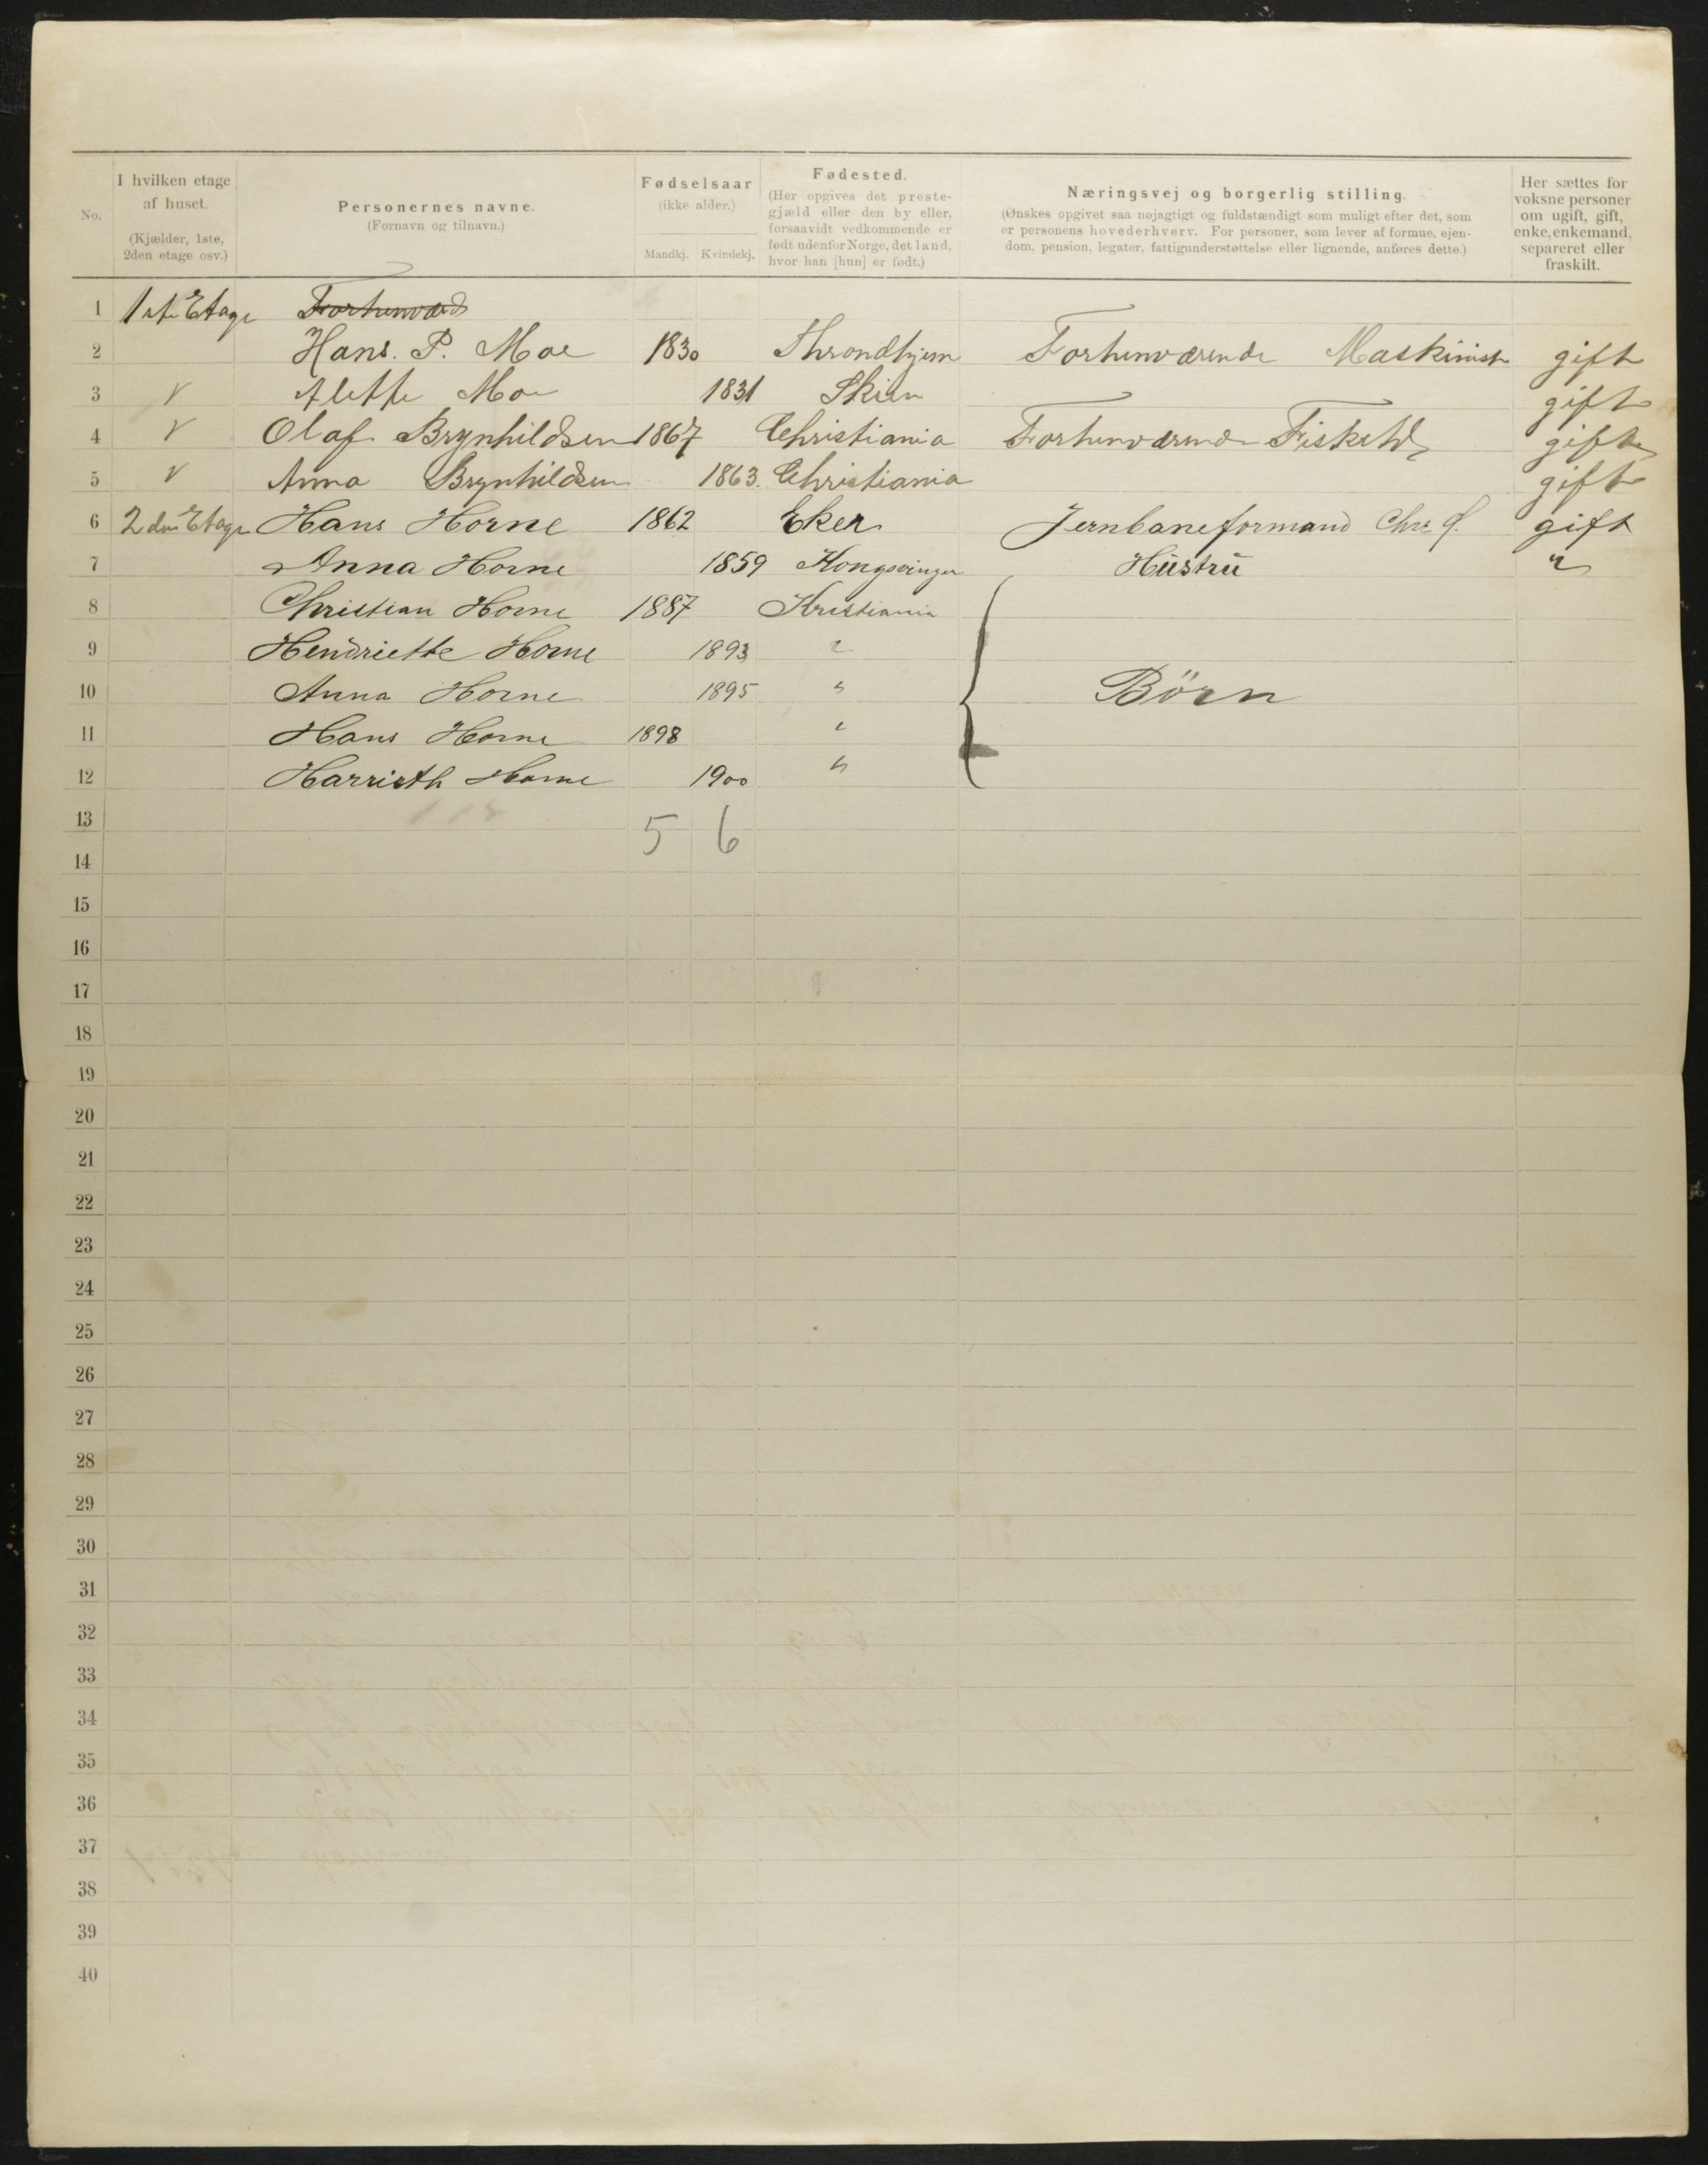 No.
I hvilken etage
af huset.
(Kjælder, 1ste,
2den etage osv.)
Personernes navne.
(Fornavn og tilnavn.)
Fødselsaar
(ikke alder.)
Mandkj. Kvindekj.
Fødested.
(Her opgives det preste-
gjæld eller den by eller,
forsaavidt vedkommende er
født udenfor Norge, det land,
hvor han [hun] er født.)
Næringsvej og borgerlig stilling.
(Ønskes opgivet saa nøjagtigt og fuldstændigt som muligt efter det, som
er personens hovederhverv. For personer, som lever af formue, ejen-
dom, pension, legater, fattigunderstøttelse eller lignende, anføres dette.)
Her sættes for
voksne personer
om ugift, gift,
enke, enkemand,
separeret eller
fraskilt.
1 1ste Etage
2 Hans. P. Moe 1830 Throndhjem Forhenværende Maskinist gift
3 Alette Moe 1831 Skien gift
4 Olaf Brynhildsen 1867 Christiania Forhenværende gift
5 Anna Brynhildsen 1863. Christiania gift
6 2den Etage Hans Horne 1862 Eker Jernbaneformand gift
7 Anna Horne 1859 Kongsvinger Hustru "
8 Christian Horne 1887 Kristiania
9 Hendriette Horne 1893 "
10 Anna Horne 1895 " Börn
11 Hans Horne 1898 "
12 Harrieth Horne 1900 "
13
5 6
14
15
16
17
18
19
20
21
22
23
24
25
26
27
28
29
30
31
32
33
34
35
36
37
38
39
40